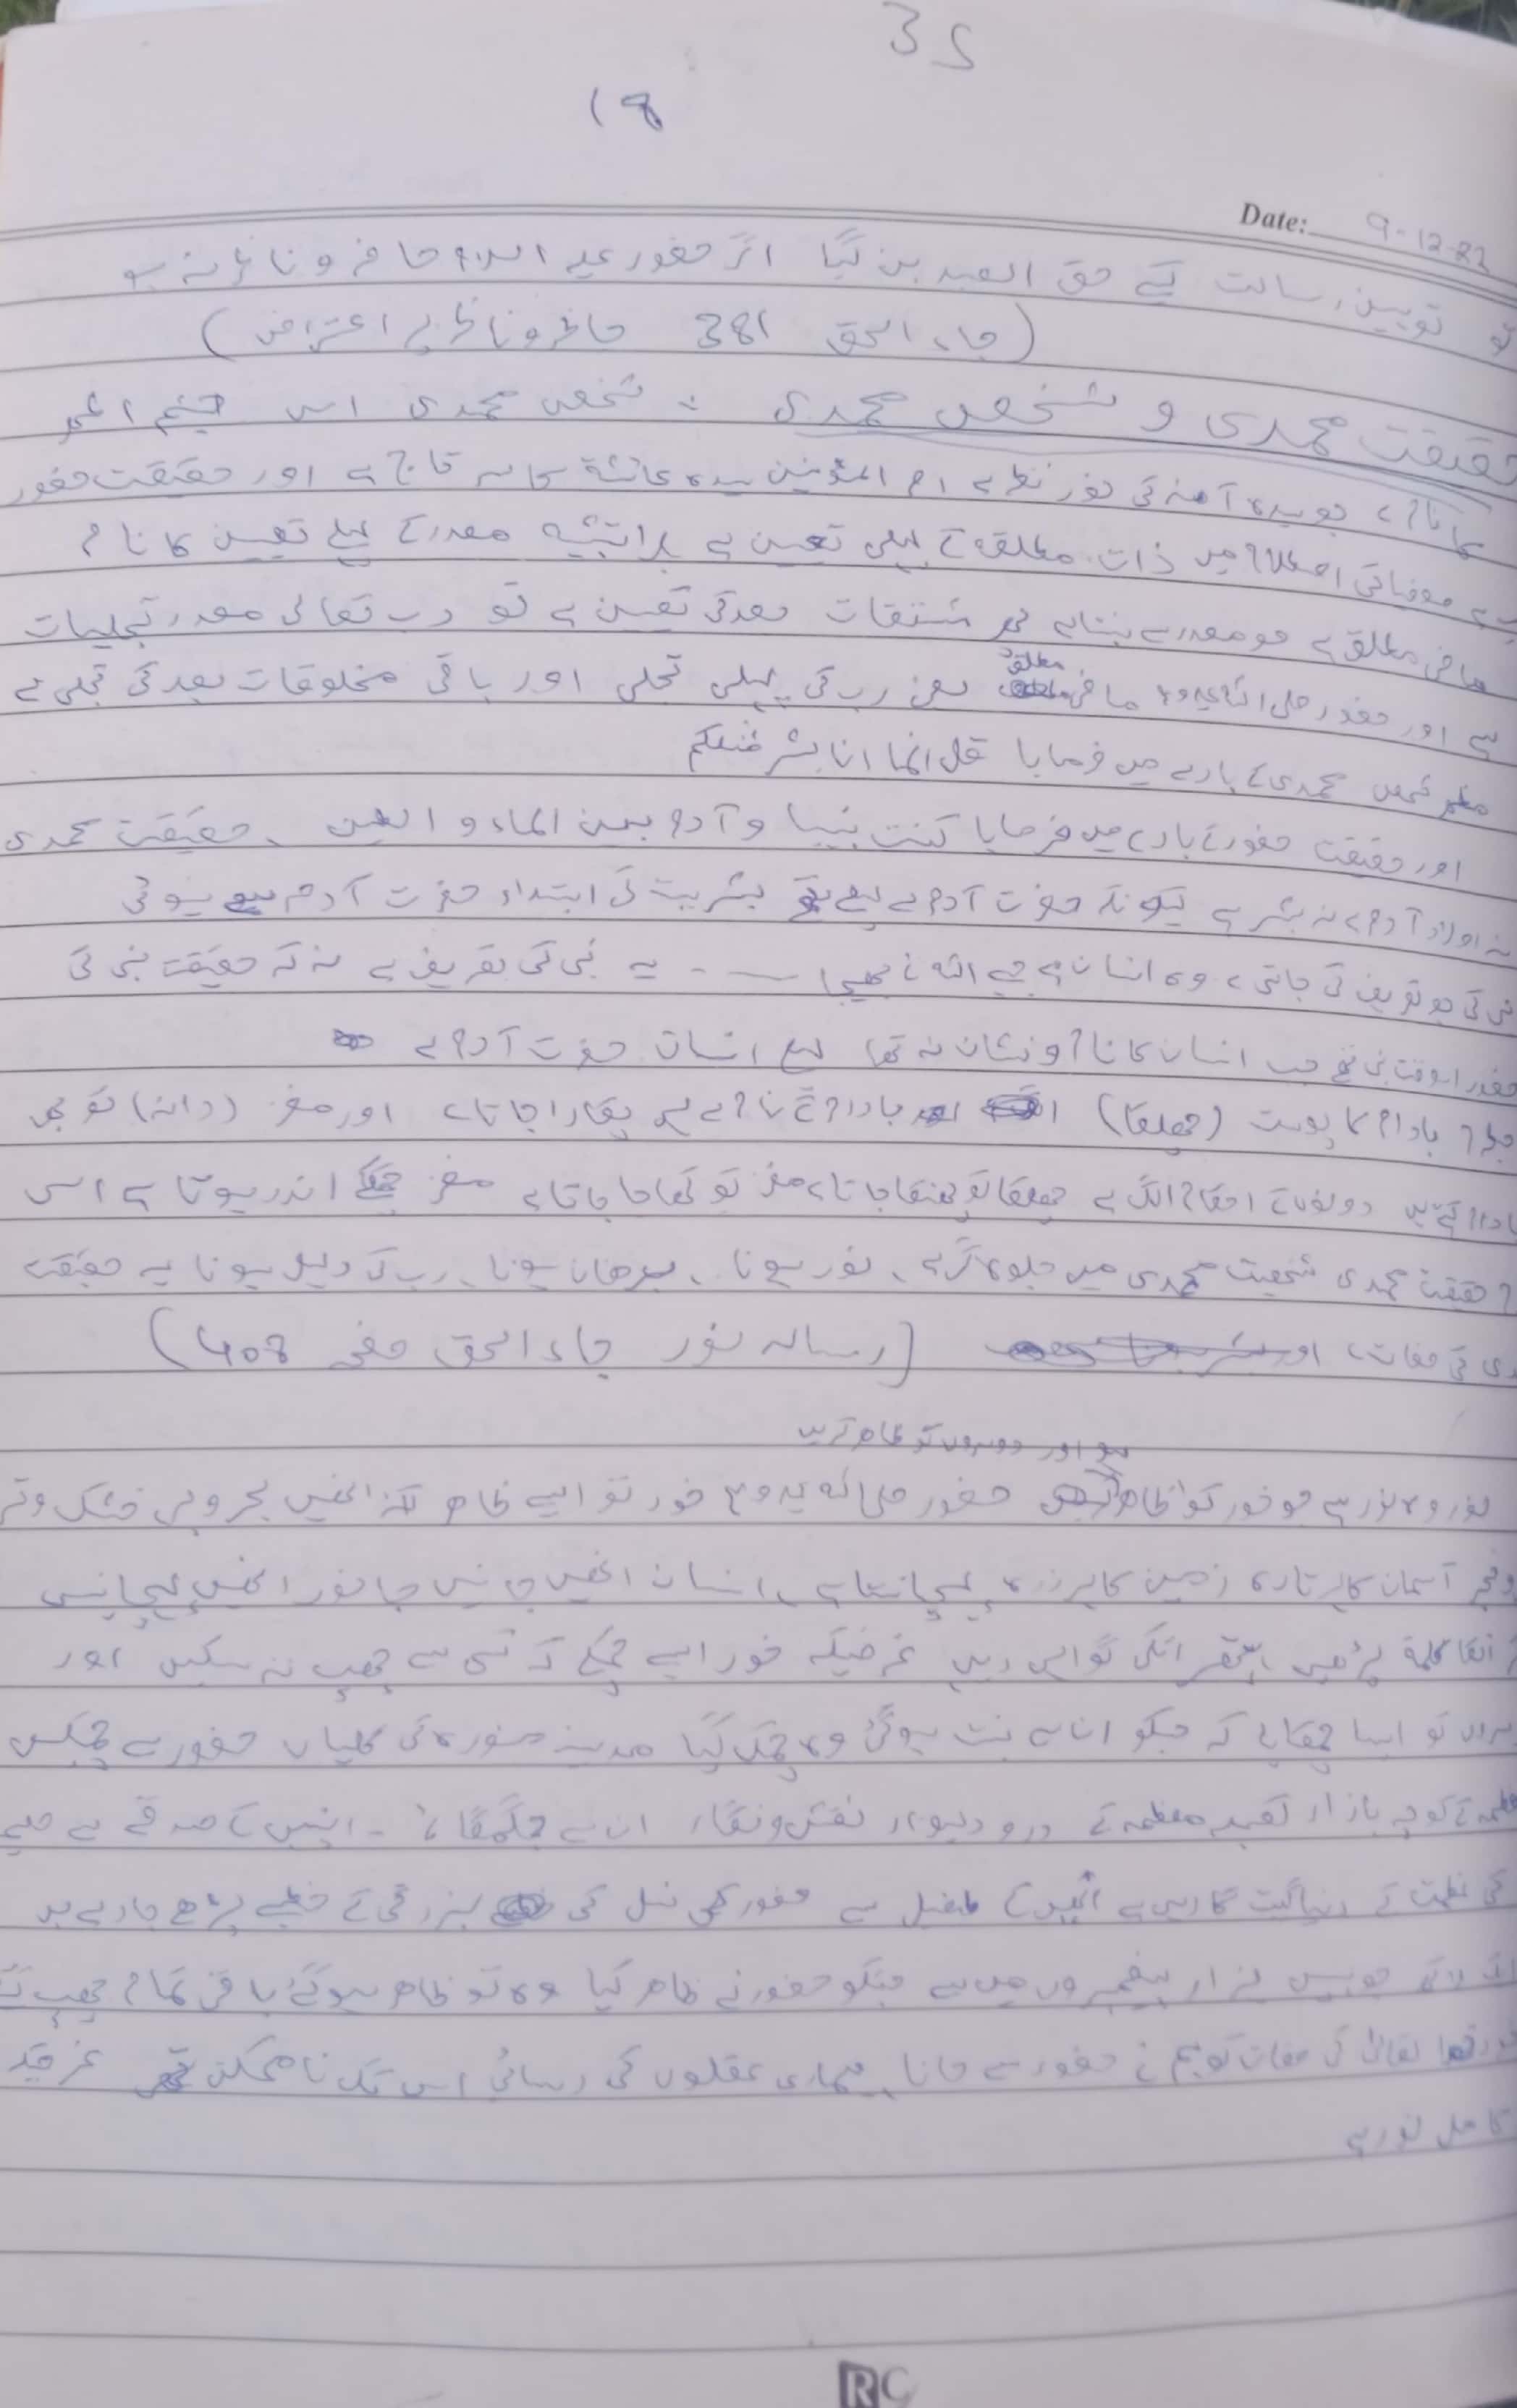 35
18
Date: 9-12-22
تو توہین رسالت کے حق العبد بن گیا اگر حضور علیہ السلام حاضر و ناظر نہ ہو
(جاء الحق 381 حاظر و ناظر پر اعتراض)
حقیقت محمدی و شخص محمدی : شخص محمدی اس جسم
کا نام ہے جو سیدہ آمنہ کی نور نظر ہے ام المؤمنین سیدہ عائشۃ کا سر تاج ہے اور حقیقت حضور
صوفیا کی اصطلاح میں ذات مطلقہ کے پہلی تعین ہے بلا تشبیہ مصدر کے پہلے تعین کا نام
ماضی مطلق ہے جو مصدر سے بنتا ہے مشتقات بعد کی تعین ہے تو رب تعالی مصدر تجلیات
ہے اور حضور صلی اللہ علیہ وسلم ماضی مطلق یعنی رب کی پہلی تجلی اور باقی مخلوقات بعد کی تجلی ہے
شخص محمدی کے بارے میں فرمایا قل انما انا بشر مثلکم
اور حقیقت حضور کے بارے میں فرمایا کنت نبیا و آدم بین الماء و الطین ۔ حقیقت محمدی
نہ اولاد آدم ہے نہ بشر ہے کیونکہ حضرت آدم سے پہلے بشریت کی ابتداء حضرت آدم سے ہوئی
نبی کی جو تعریف کی جاتی ہے وہ انسان ہے جسے اللہ نے بھیجا ۔۔ یہ نبی کی تعریف ہے نہ کہ حقیقت نبی کی
حضور اسوقت نبی تھے جب انسان کا نام و نشان نہ تھا پہلے انسان حضرت آدم ہے
بادام کا پوست (چھلکا) بادام کے نام سے پکارا جاتا ہے اور مغز (دانہ) کو بھی
بادام کہتے ہیں دونوں کے احکام الگ ہے چھلکا تو پھینکا جاتا ہے مغز تو کھایا جاتا ہے مغز چھلکے اندر ہوتا ہے اس
حقیقت محمدی شخصیت محمدی میں جلوہ گر ہے ، نور ہونا ، برھان ہونا ، رب کی دلیل ہونا یہ حقیقت
کی صفات ہے [رسالہ نور جاء الحق صفحہ 408)
اور دوسروں کو ظاہر کریں
نور وہ نور ہے جو خود کو ظاہر حضور صلی اللہ علیہ وسلم خود تو ایسے ظاہر کہ انھیں بحر و بر خشک و تر
آسمان کا ہر تارہ زمین کا ہر ذرہ پہچانتا ہے ، انسان انھیں جانیں جانور انھیں پہچانیں
انکا کلمہ پڑھیں پتھر انکی گواہی دیں غرضیکہ خود ایسے چمکے کہ کسی سے چھپ نہ سکیں اور
ایسا چمکایا کہ جسکو ان سے نسبت ہوگئ وہ چمک گیا مدینہ منورہ کی گلیاں حضور سے چمکیں
کے کوچہ بازار کعبہ معظمہ کے در و دیوار نقش و نگار ان سے جگمگائے ۔ انہیں کے صدقے سے
کے دنیا گیت گا رہی ہے انھیں کے طفیل سے حضور کی نسل کی بزرگی کے خطبے پڑھے جا رہے
چوبیس ہزار پیغمبروں میں سے جنکو حضور نے ظاہر کیا وہ تو ظاہر ہوگئے باقی تمام چھپ گئے
تعالیٰ کی صفات کو ہم نے حضور سے جانا ہماری عقلوں کی رسائی اس تک ناممکن تھی غرضیکہ
کامل نور ہے
RC